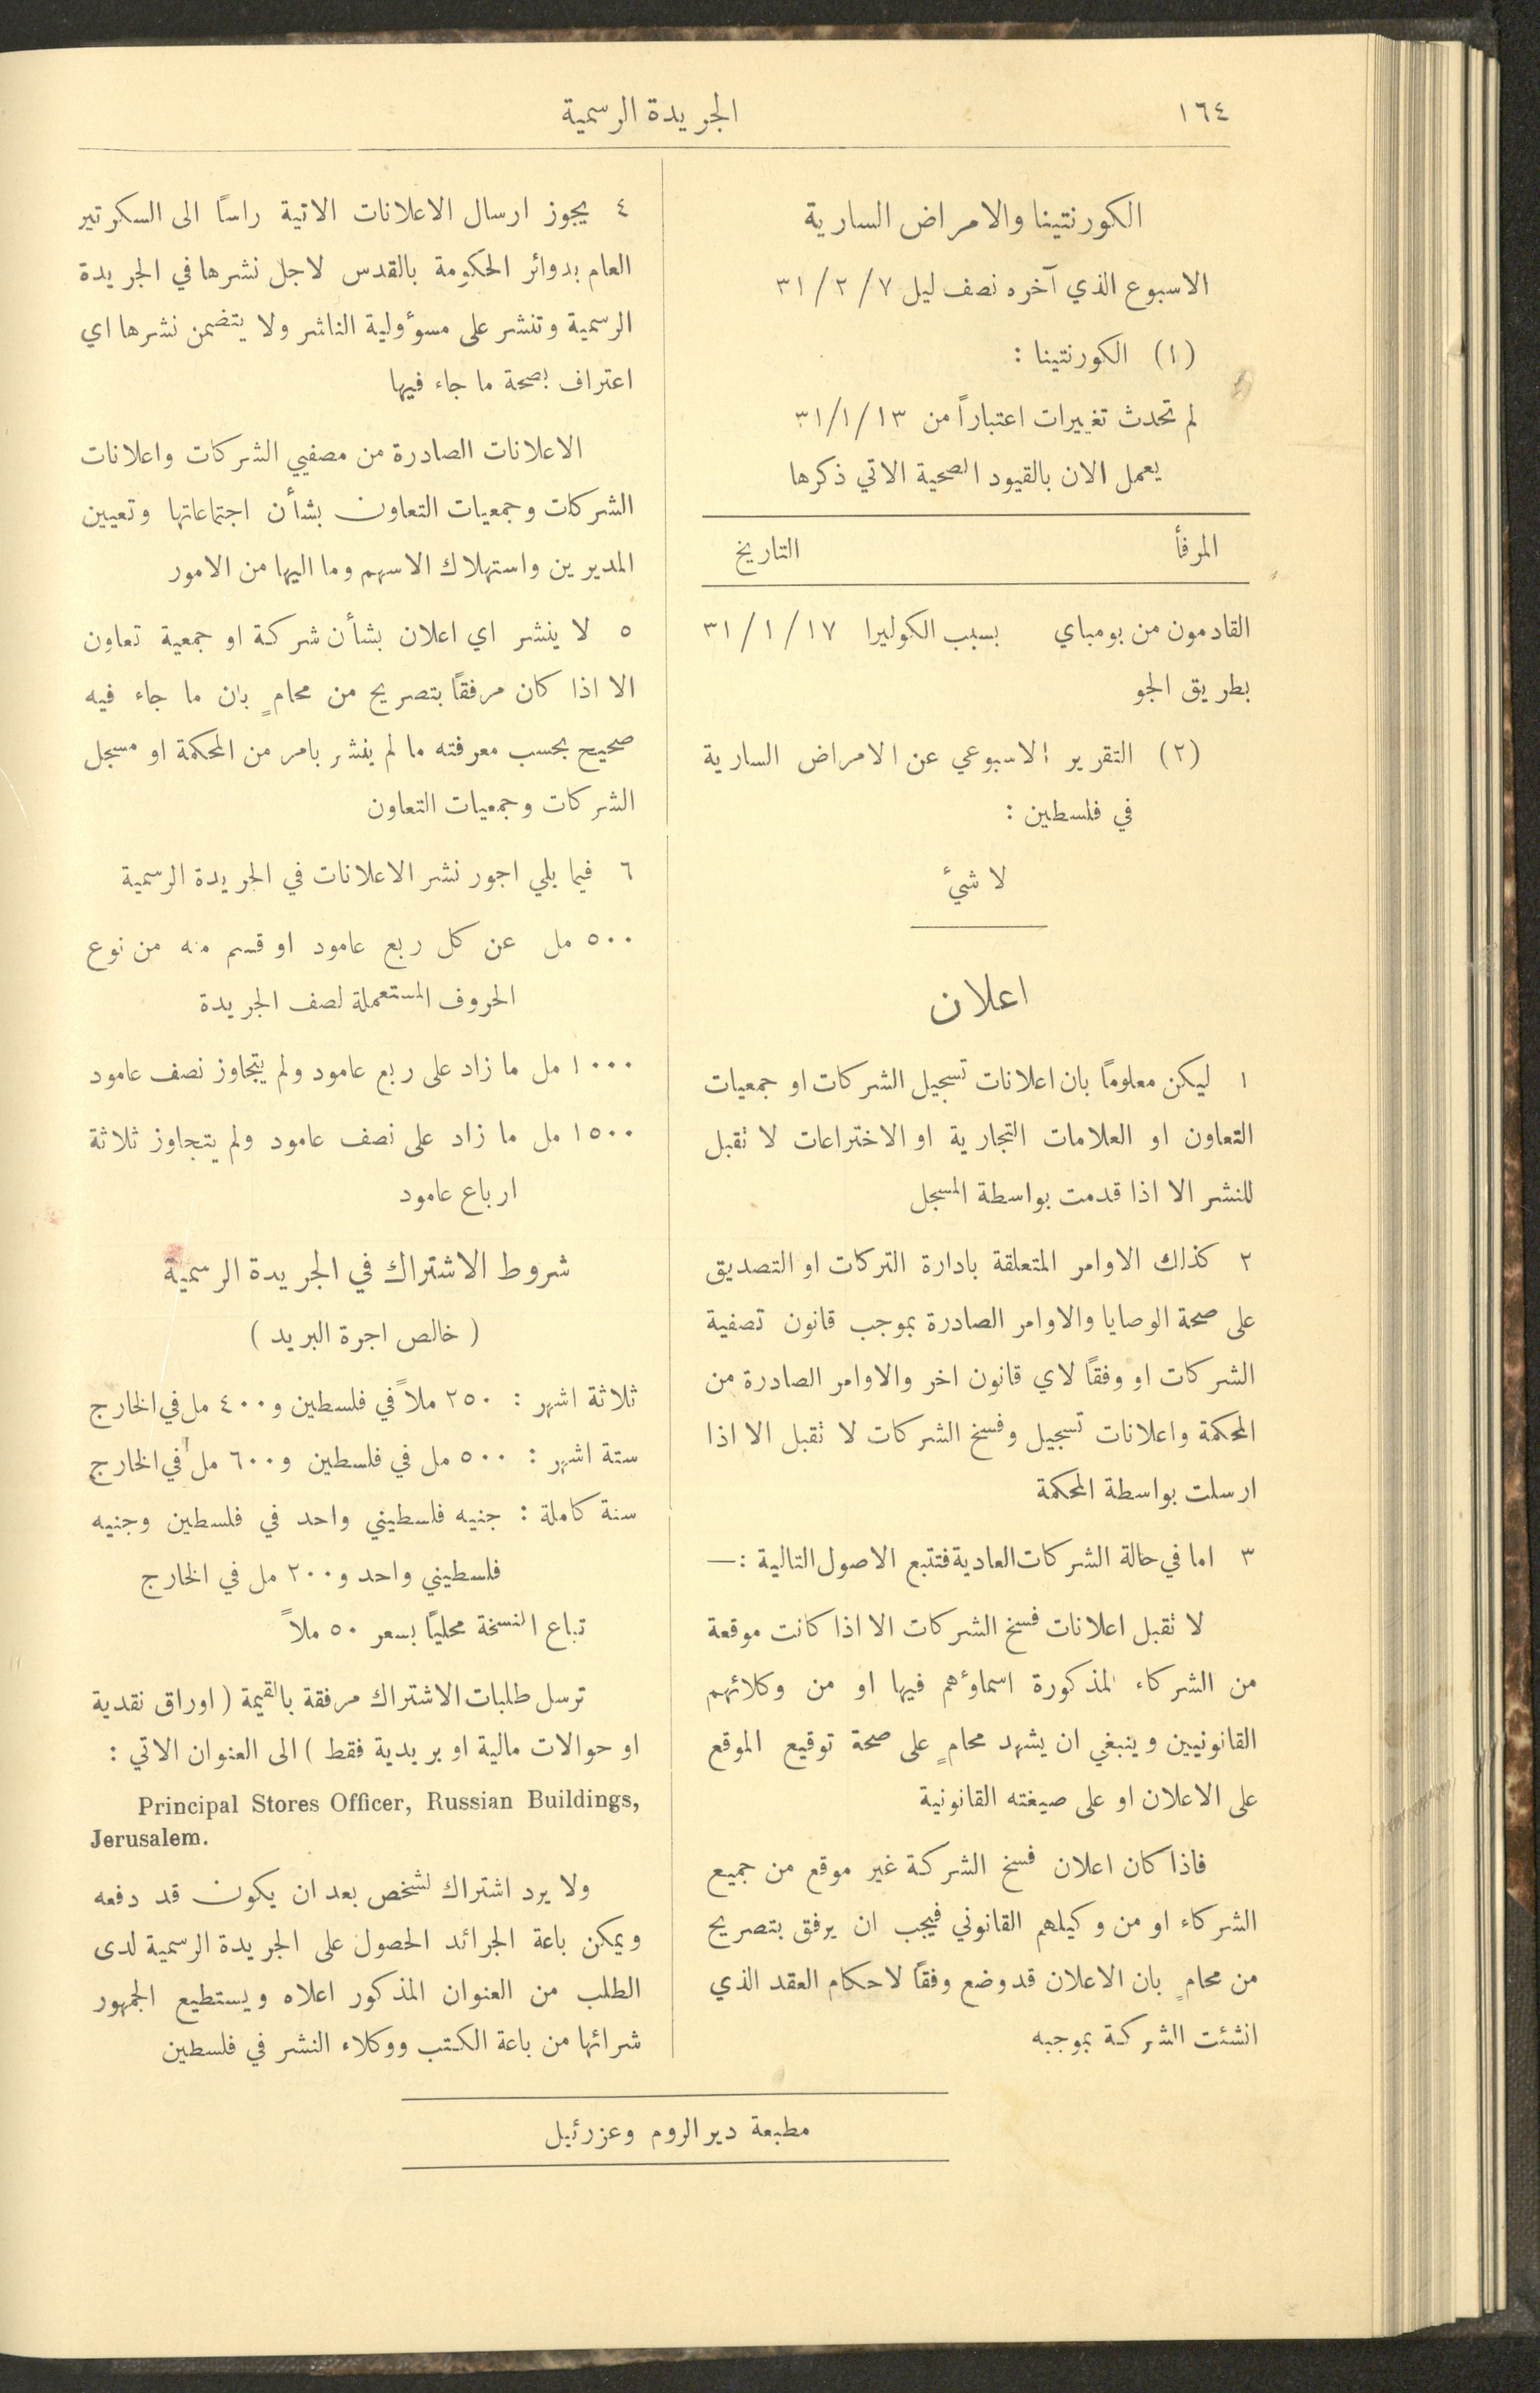 ١٦٤
الجريدة الرسمية
الكورنتينا والامراض السارية
الاسبوع الذي آخره نصف ليل ٧ / ٢ / ٣١
(١) الكورنتينا :
لم تحدث تغييرات اعتباراً من ١٣ / ١ / ٣١
يعمل الان بالقيود الصحية الاتي ذكرها
المرفأ التاريخ
القادمون من بومباي بسبب الكوليرا ١٧ / ١ / ٣١
بطريق الجو
(٢) التقرير الاسبوعي عن الامراض السارية
في فلسطين :
لا شيء
اعلان
١ ليكن معلوماً بان اعلانات تسجيل الشركات او جمعيات
التعاون او العلامات التجارية او الاختراعات لا تقبل
للنشر الا اذا قدمت بواسطة المسجل
٢ كذلك الاوامر المتعلقة بادارة التركات او التصديق
على صحة الوصايا والاوامر الصادرة بموجب قانون تصفية
الشركات او وفقاً لاي قانون اخر والاوامر الصادرة من
المحكمة واعلانات تسجيل وفسخ الشركات لا تقبل الا اذا
ارسلت بواسطة المحكمة
٣ اما في حالة الشركات العادية فتتبع الاصول التالية :—
لا تقبل اعلانات فسخ الشركات الا اذا كانت موقعة
من الشركاء المذكورة اسماؤهم فيها او من وكلائهم
القانونيين وينبغي ان يشهد محامٍ على صحة توقيع الموقع
على الاعلان او على صيغته القانونية
فاذا كان اعلان فسخ الشركة غير موقع من جميع
الشركاء او من وكيلهم القانوني فيجب ان يرفق بتصريح
من محامٍ بان الاعلان قد وضع وفقاً لاحكام العقد الذي
انشئت الشركة بموجبه
٤ يجوز ارسال الاعلانات الاتية راساً الى السكرتير
العام بدوائر الحكومة بالقدس لاجل نشرها في الجريدة
الرسمية وتنشر على مسؤولية الناشر ولا يتضمن نشرها اي
اعتراف بصحة ما جاء فيها
الاعلانات الصادرة من مصفيي الشركات واعلانات
الشركات وجمعيات التعاون بشأن اجتماعاتها وتعيين
المديرين واستهلاك الاسهم وما اليها من الامور
٥ لا ينشر اي اعلان بشأن شركة او جمعية تعاون
الا اذا كان مرفقاً بتصريح من محامٍ بان ما جاء فيه
صحيح بحسب معرفته ما لم ينشر بامر من المحكمة او مسجل
الشركات وجمعيات التعاون
٦ فيما يلي اجور نشر الاعلانات في الجريدة الرسمية
٥٠٠ مل عن كل ربع عامود او قسم منه من نوع
الحروف المستعملة لصف الجريدة
١٠٠٠ مل ما زاد على ربع عامود ولم يتجاوز نصف عامود
١٥٠٠ مل ما زاد على نصف عامود ولم يتجاوز ثلاثة
ارباع عامود
شروط الاشتراك في الجريدة الرسمية
( خالص اجرة البريد )
ثلاثة اشهر : ٢٥٠ ملاً في فلسطين و٤٠٠ مل في الخارج
ستة اشهر : ٥٠٠ مل في فلسطين و٦٠٠ مل في الخارج
سنة كاملة : جنيه فلسطيني واحد في فلسطين وجنيه
فلسطيني واحد و٢٠٠ مل في الخارج
تباع النسخة محلياً بسعر ٥٠ ملاً
ترسل طلبات الاشتراك مرفقة بالقيمة ( اوراق نقدية
او حوالات مالية او بريدية فقط ) الى العنوان الاتي :
Principal Stores Officer, Russian Buildings,
Jerusalem.
ولا يرد اشتراك لشخص بعد ان يكون قد دفعه
ويمكن باعة الجرائد الحصول على الجريدة الرسمية لدى
الطلب من العنوان المذكور اعلاه ويستطيع الجمهور
شرائها من باعة الكتب ووكلاء النشر في فلسطين
مطبعة دير الروم وعزرئيل